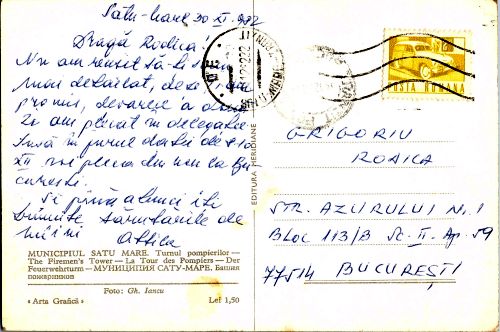 Satu-Mare 30 XI. 982
Dragă Rodica!
Nu am reușit să-ți scriu
mai detailat, deși am
promis, deoarece a doua
zi am plecat în delegație.
Însă în jurul datei de 10
XII voi pleca din nou la Bu
curești.
Și până atunci îți
trimite sărutările de
mâini
Attila
MUNICIPIUL SATU MARE. Turnul pompierilor —
The Firemen's Tower — La Tour des Pompiers — Der
Feuerwehrturm — МУНИЦИПИЯ САТУ-МАРЕ. Башня
пожарников
Foto: Gh. Iancu
« Arta Grafică »
Lei 1,50
EDITURA MERIDIANE
POSTA ROMANA
GRIGORIU
RODICA
STR. AZURULUI N. 1
BLOC 113/B Sc. II. Ap. 59
77514 BUCUREȘTI